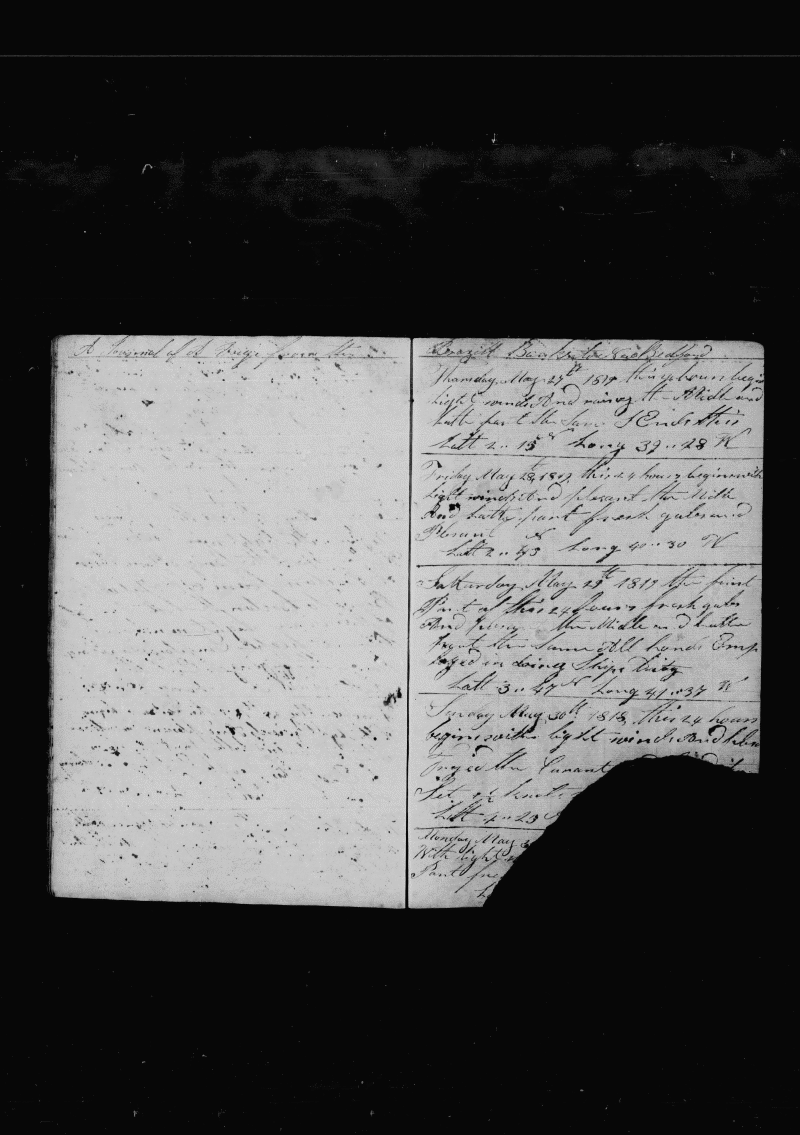 A Journal of A Voige from the
Brazill Banks towards Bedford
Thursday May 27th 1819 this 24 hours begins
Light winds And rainey the Midle and
Latte part the Same
Latt 2 .. 15 N Long 39 .. 28 W
Friday May 28, 1819, this 24 hours begins with
Light winds And plesant the Midle
And Latte part fresh gales and
Plesant
Latt 2 .. 45 N Long 41 .. 30 W
Satturday May 29th 1819 the first
Part of this 24 hours fresh gales
And the Midle and Latter
Part the Same All hands Emp
loyed in doing Ships Duty
Latt 3 .. 47 N Long 41 .. 37 W
Sunday May 30th 1818 this 24 hours
begins with light winds And
the Curant
Set
Latt 4 .. 23
Monday May
With light
Part fre